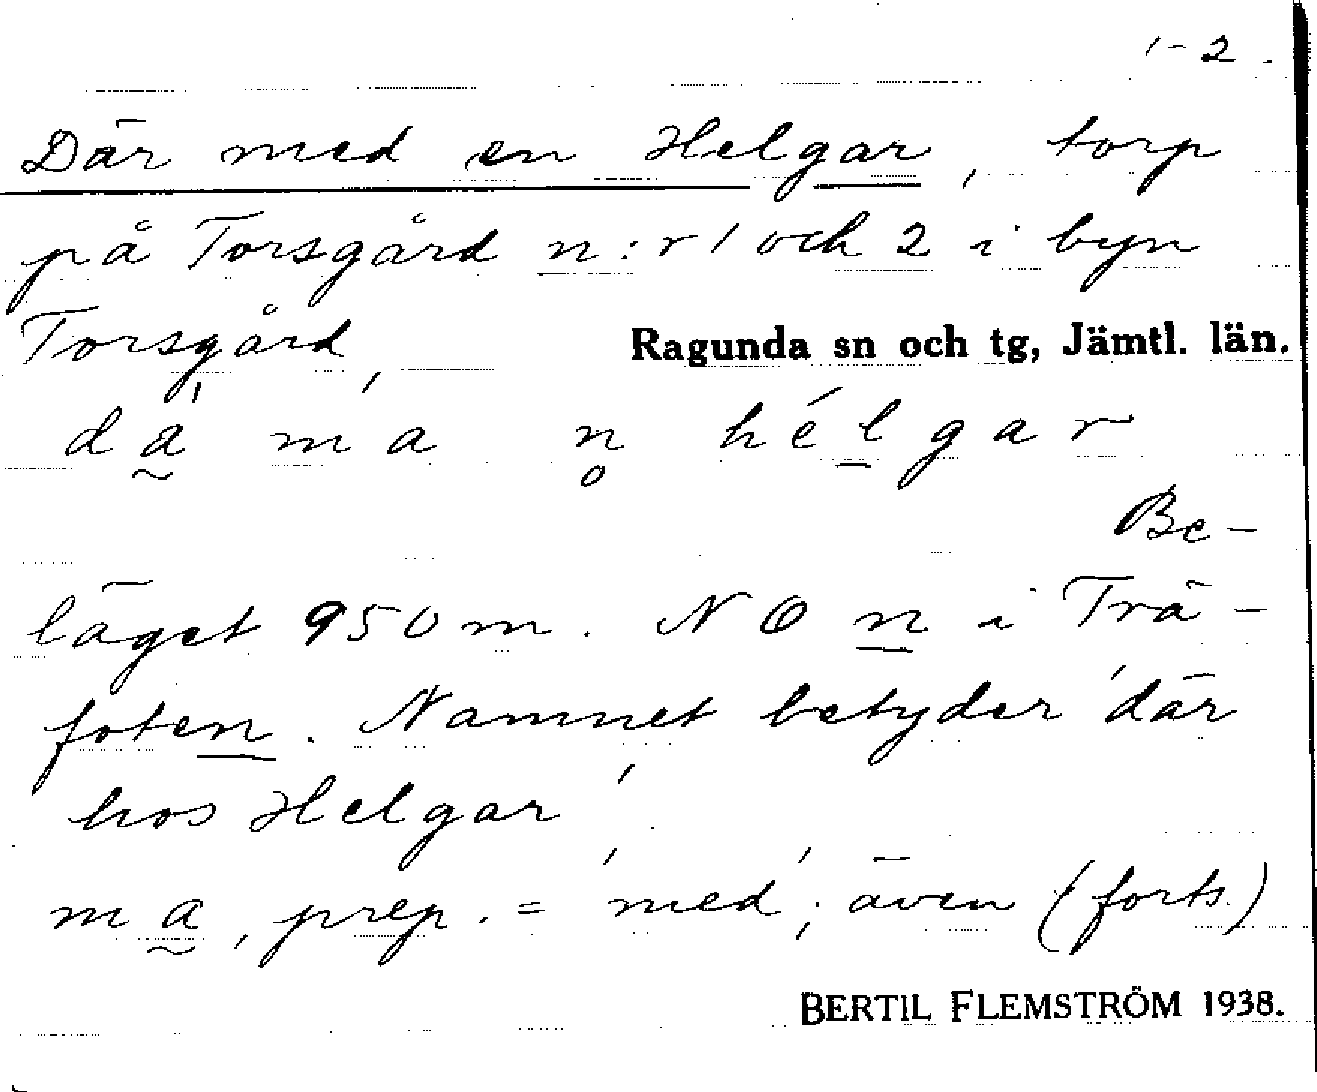 1-2.
Där med en Helgar, torp
på Torsgård n:r 1 och 2 i byn
Torsgård,
Ragunda sn och tg, Jämtl. län.
dä̰́ m a n̥ hélgar
Be-
läget 950 m. NO n i Trä-
foten. Namnet betyder 'där
hos Helgar'
ma̰, prep. = 'med'; även (forts.)
BERTIL FLEMSTRÖM 1938.